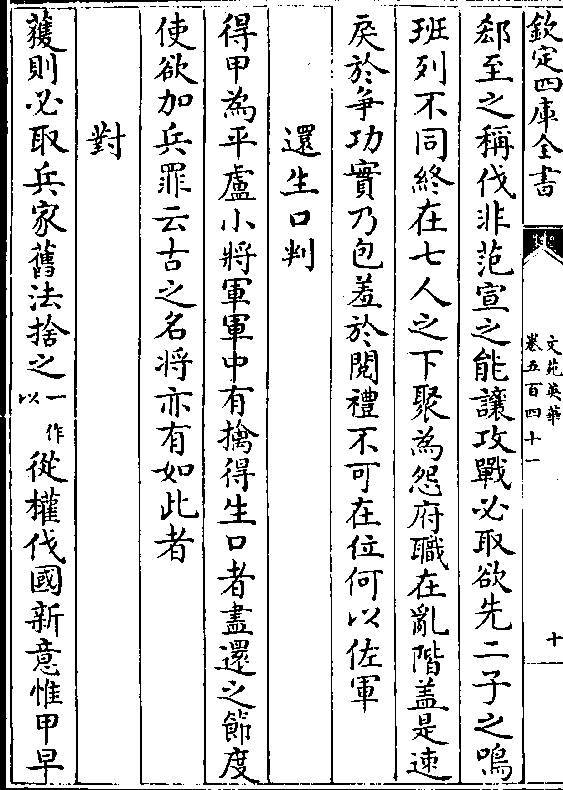 欽定四庫全書
文苑英華
卷五百四十一
十
郄至之稱伐非范宣之能讓攻戰必取欲先二子之鳴
班列不同終在七人之下聚為怨府職在亂階盖是速
戾於爭功實乃包羞於閱禮不可在位何以佐軍
還生口判
得甲為平盧小將軍軍中有擒得生口者盡還之節度
使欲加兵罪云古之名將亦有如此者
對
蒦則必取兵家舊法捨之一作以從權伐國新意惟甲早